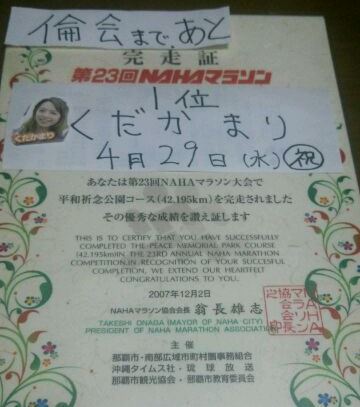 倫会まで、あと
完走証
第23回NAHAマラソン
1位
くだかまり
くだかまり
4月29日(水)祝
あなたは第23回NAHAマラソン大会で
平和祈念公園コース(42.195km)を完走されました
その優秀な成績を讃え証します
THIS IS TO CERTIFY THAT YOU HAVE SUCCESSFULLY
COMPLETED THE PEACE MEMORIAL PARK COURSE
(42.195km)IN THE 23RD ANNUAL NAHA MARATHON
COMPETITION.IN RECOGNITION OF YOUR SUCCESSFUL
COMPLETION, WE EXTEND OUR HEARTFELT
CONGRATULATIONS TO YOU.
2007年12月2日
NAHAマラソン協会会長 翁長雄志
TAKESHI ONAGA (MAYOR OF NAHA CITY)
PRESIDENT OF NAHA MARATHON ASSOCIATION
主催
那覇市・南部広域市町村圏事務組合
沖縄タイムス社・琉球放送
那覇市観光協会・那覇市教育委員会